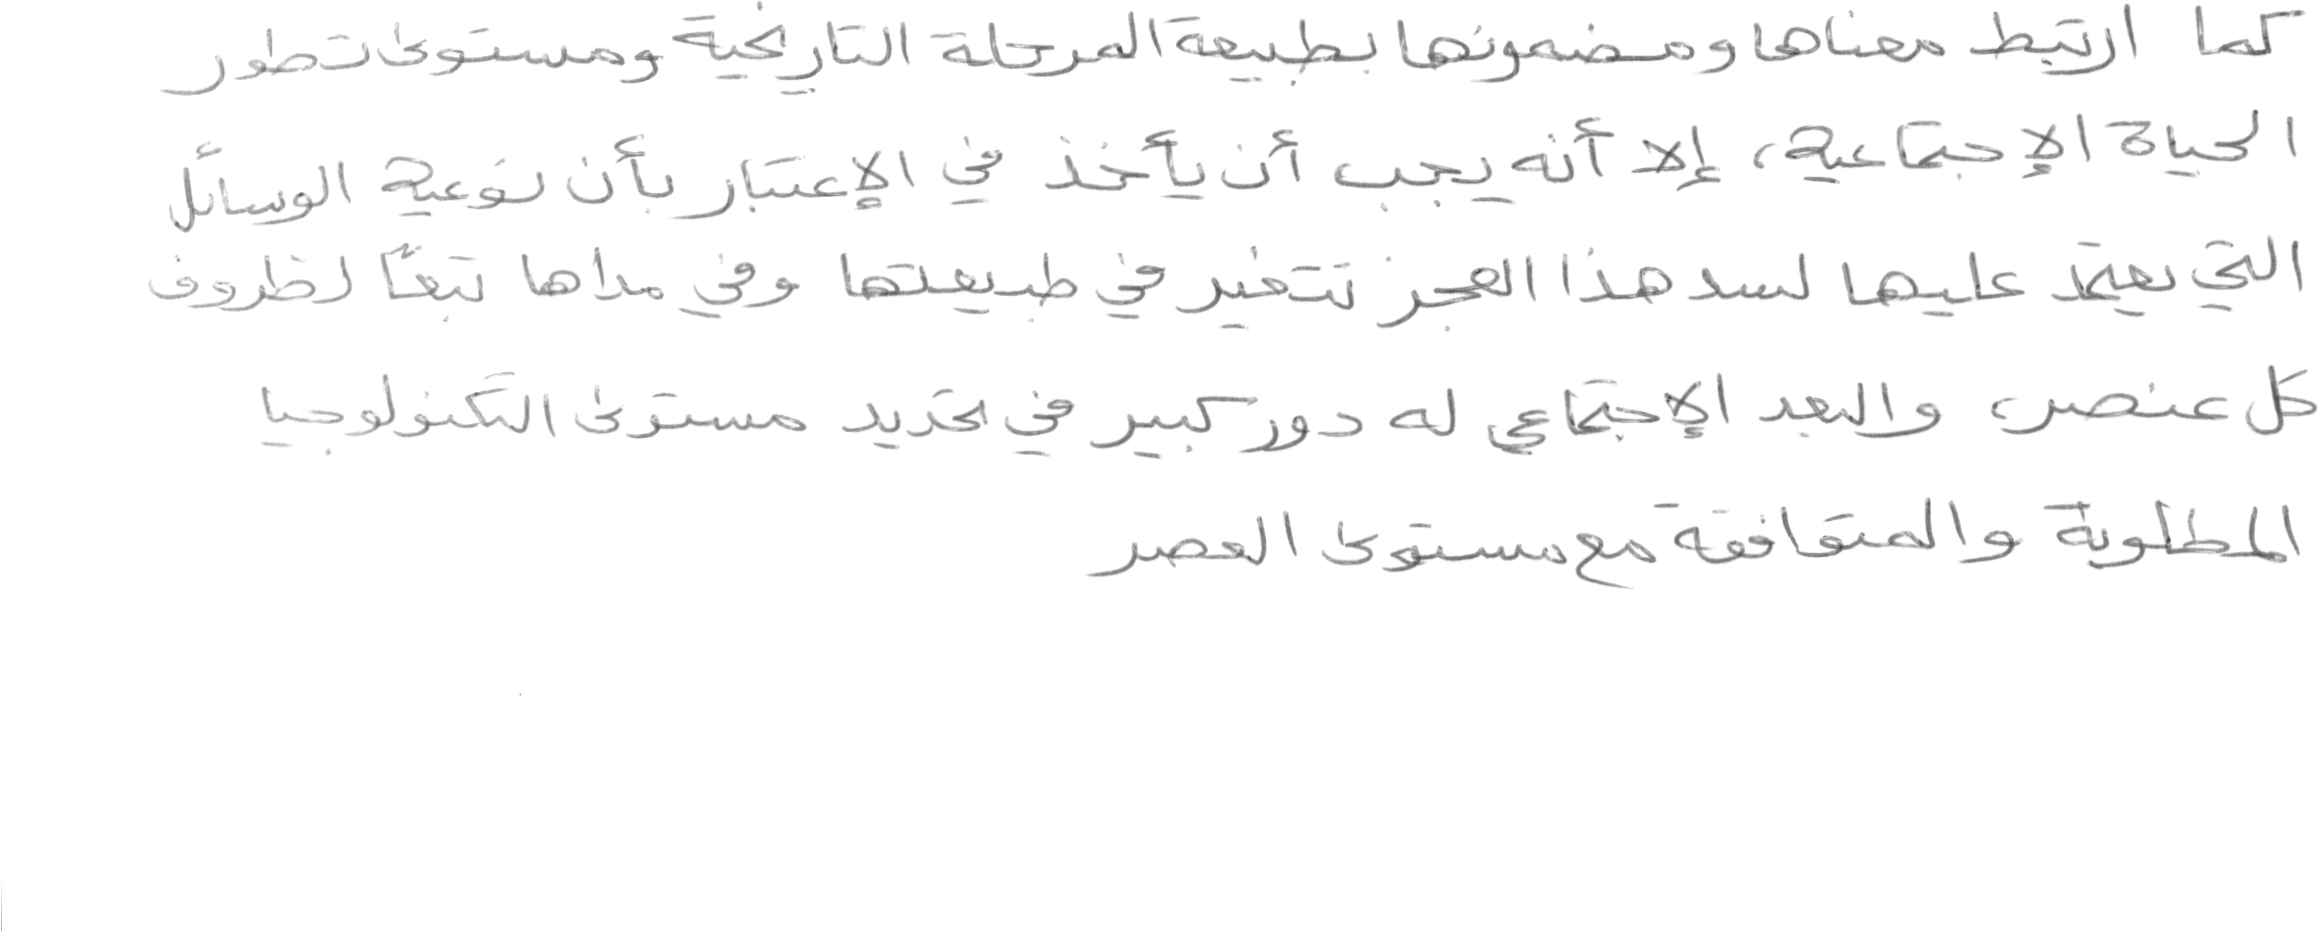 كما ارتبط معناها ومضمونها بطبيعة المرحلة التاريخية ومستوى تطور
الحياة الإجتماعية، إلا أنه يجب أن يأخذ في الإعتبار بأن نوعية الوسائل
التي يعتمد عليها لسد هذا العجز تتغير في طبيعتها وفي مداها تبعًا لظروف
كل عنصر، والبعد الإجتماعي له دور كبير في تحديد مستوى التكنولوجيا
المطلوبة والمتوافقة مع مستوى العصر